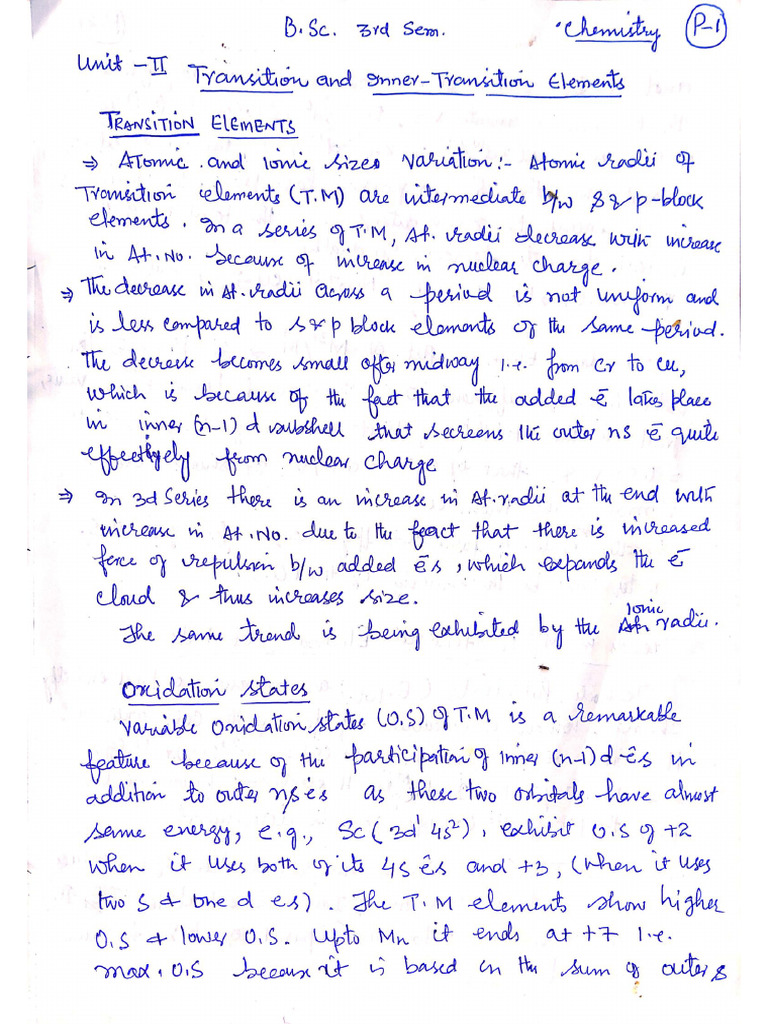 B.Sc. 3rd Sem. Chemistry P-1
Unit-II Transition and Inner-Transition Elements
TRANSITION ELEMENTS
⇒ Atomic and ionic sizes variation:- Atomic radii of
Transition elements (T.M) are intermediate b/w s & p-block
elements. In a series of T.M, At. radii decrease with increase
in At. No. because of increase in nuclear charge.
⇒ The decrease in At. radii across a period is not uniform and
is less compared to s & p block elements of the same period.
The decrease becomes small after midway i.e. from Cr to Cu,
which is because of the fact that the added ē takes place
in inner (n-1) d subshell that secreens the outer ns ē quite
effectively from nuclear charge
⇒ In 3d Series there is an increase in At. radii at the end with
increase in At. No. due to the fact that there is increased
force of repulsion b/w added ēs, which expands the ē
cloud & thus increases size.
The same trend is being exhibited by the Ionic radii.
Oxidation states
Variable Oxidation states (O.S) of T.M is a remarkable
feature because of the participation of inner (n-1) d ēs in
addition to outer ns ēs as these two orbitals have almost
same energy, e.g., Sc (3d¹ 4s²), exhibit O.S of +2
when it uses both of its 4s ēs and +3, (when it uses
two s & one d es). The T.M elements show higher
O.S & lower O.S. Upto Mn it ends at +7 i.e.
max. O.S because it is based on the sum of outer s